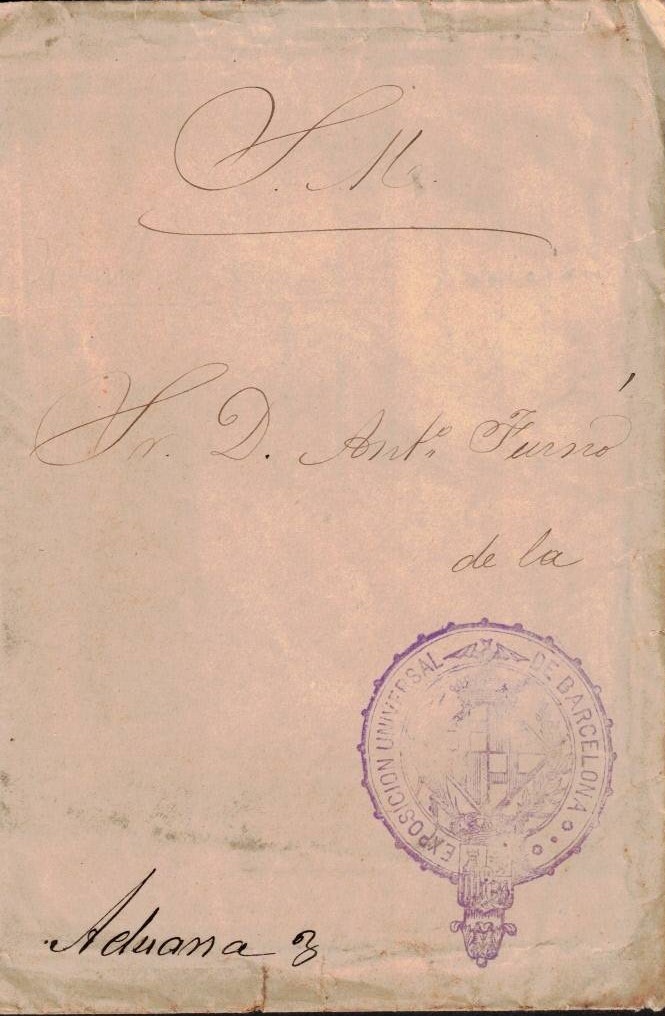 S. M.
Sr. D. Antº Furnó
de la
EXPOSICION UNIVERSAL DE BARCELONA
Aduana 3